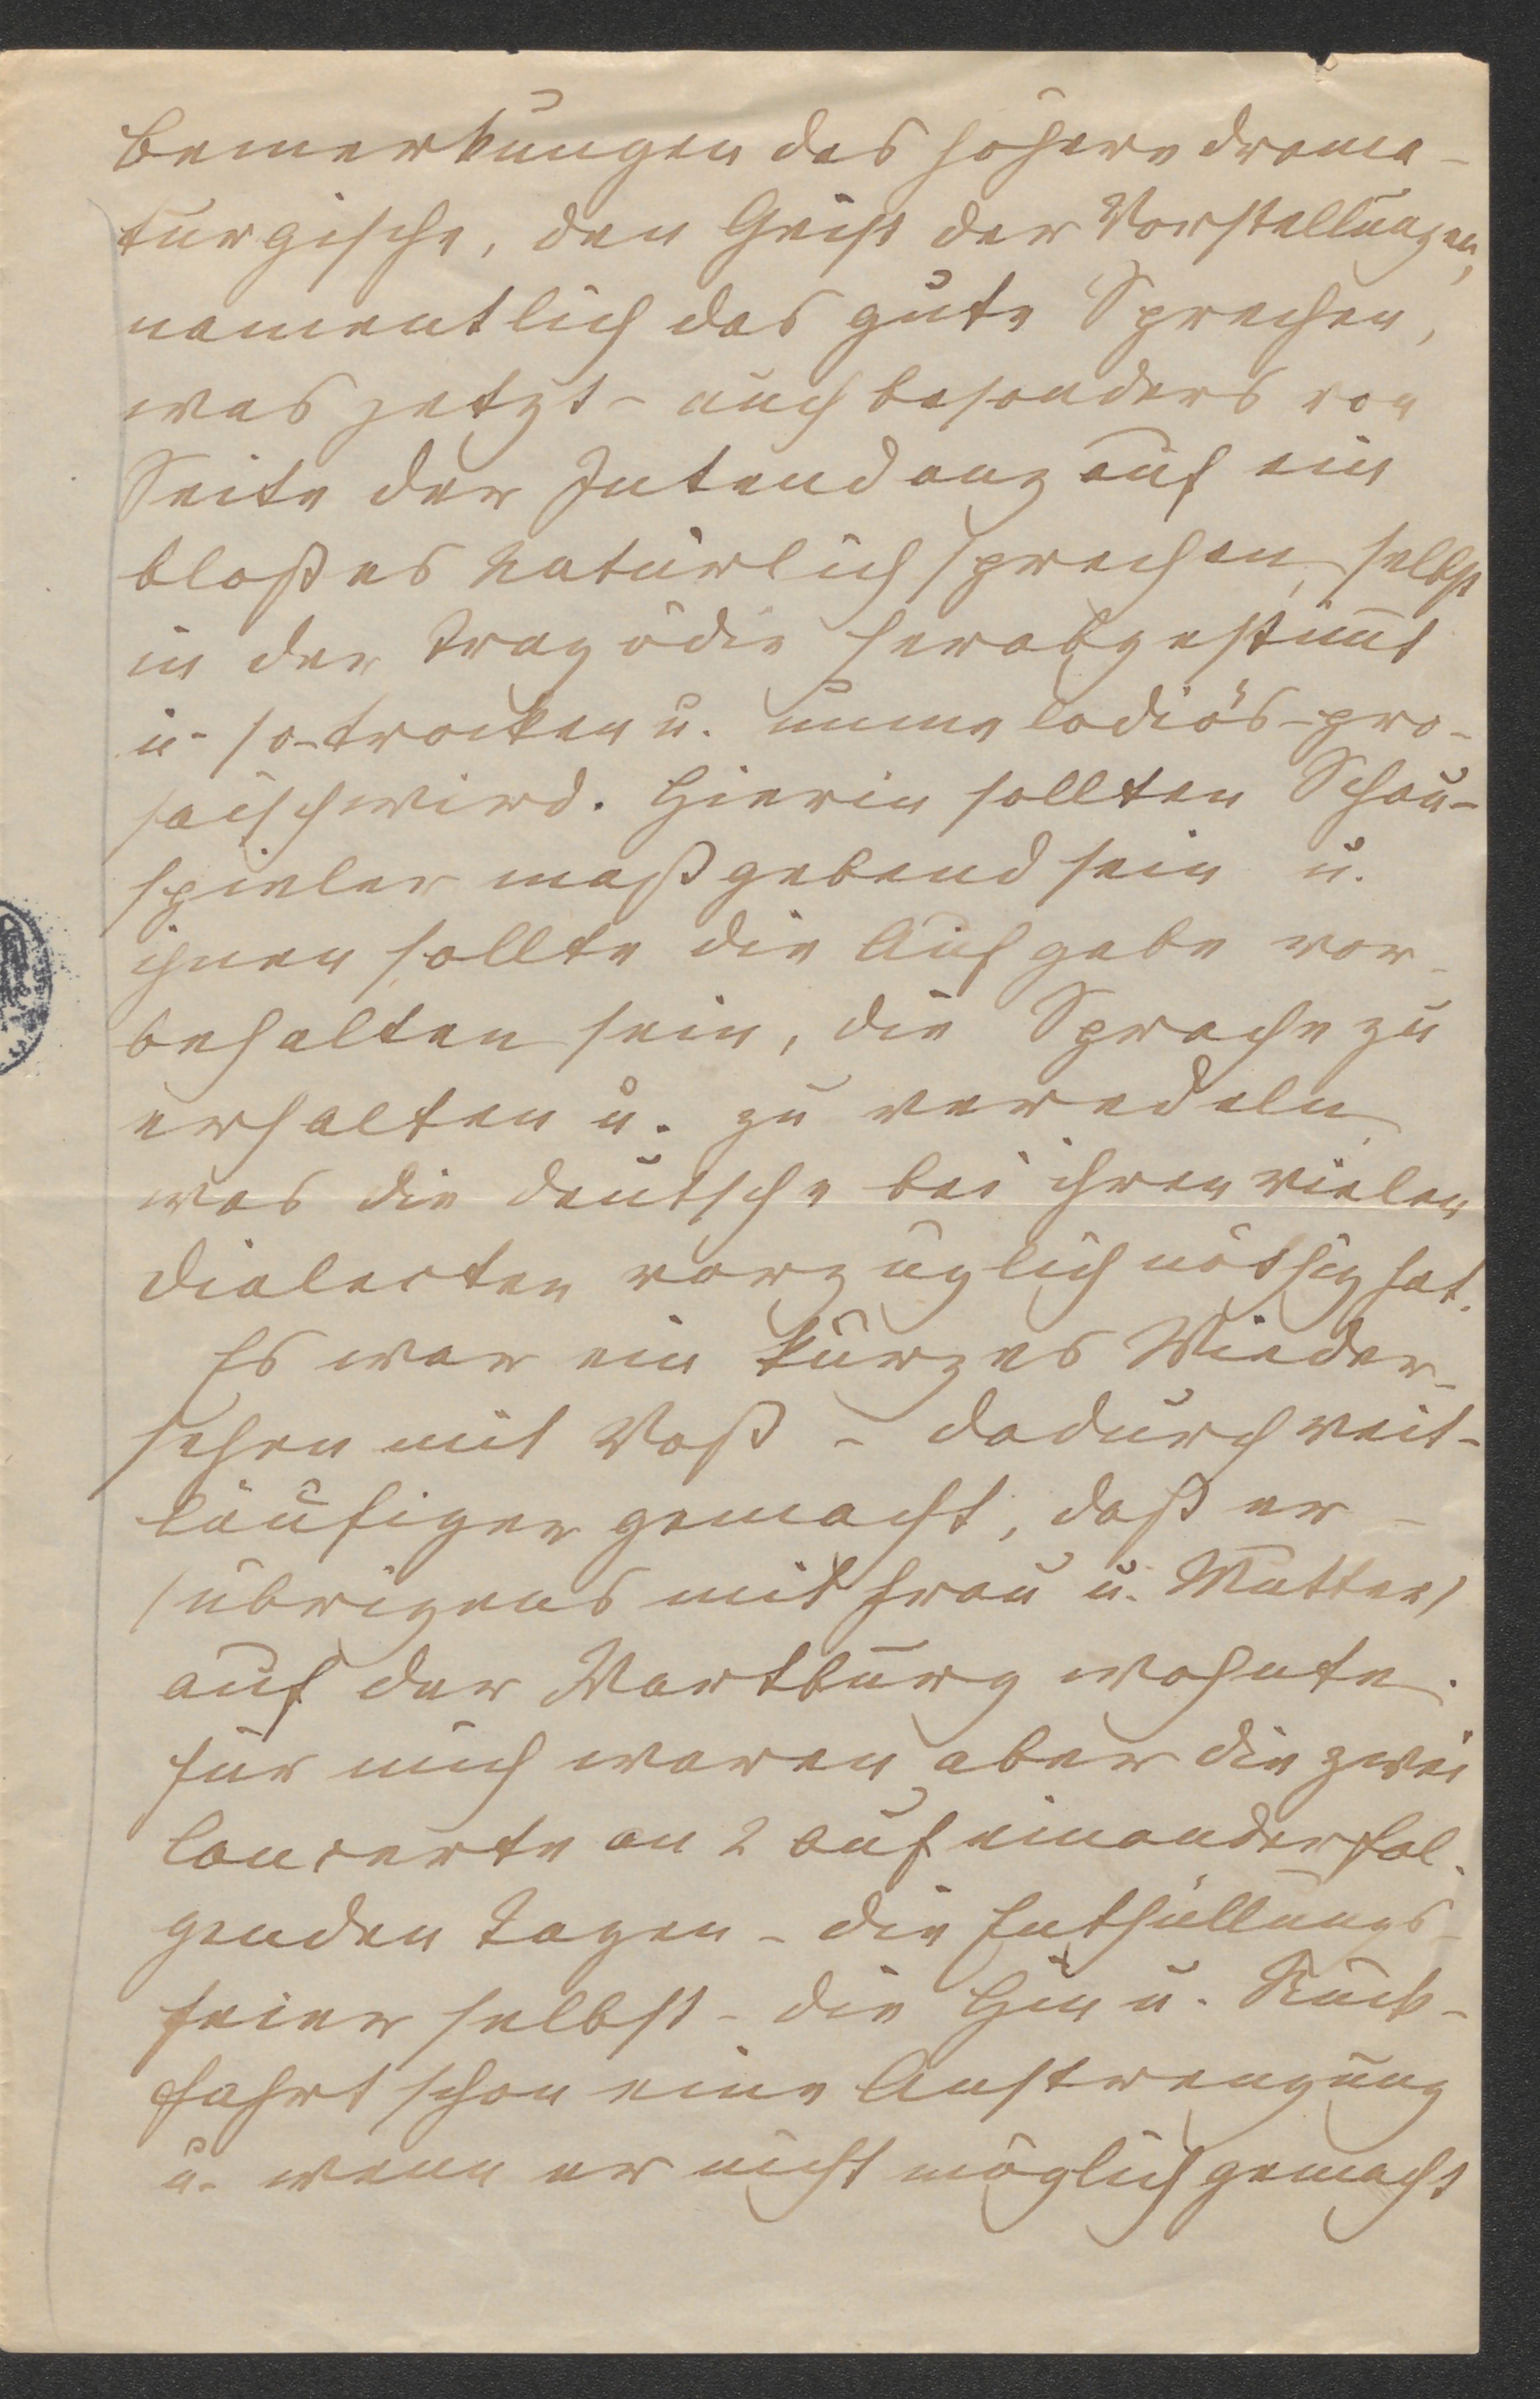 Bemerkungen das höhere drama-
turgische, den Geist der Vorstellungen,
namentlich das gute Sprechen,
was jetzt - auch besonders von
Seite der Intendanz auf ein
bloßes Natürlichsprechen, selbst
in der Tragödie herabgestimmt
u. so trocken u. unmelodiös-pro-
saisch wird. Hierin sollten Schau-
spieler maßgebend sein u.
ihnen sollte die Aufgabe vor-
behalten sein, die Sprache zu
erhalten u. zu veredeln
was die deutsche bei ihren vielen
Dialecten vorzüglich nöthig hat.
Es war ein kurzes Wieder-
sehen mit Voß - dadurch weit-
läufiger gemacht, daß er -
(übrigens mit Frau u. Mutter)
auf der Wartburg wohnte.
Für mich waren aber die zwei
Concerte an 2 aufeinanderfol-
genden Tagen - die Enthüllungs-
feier selbst - die Hin u. Rück-
fahrt schon eine Anstrengung
u. wenn er nicht möglich gemacht